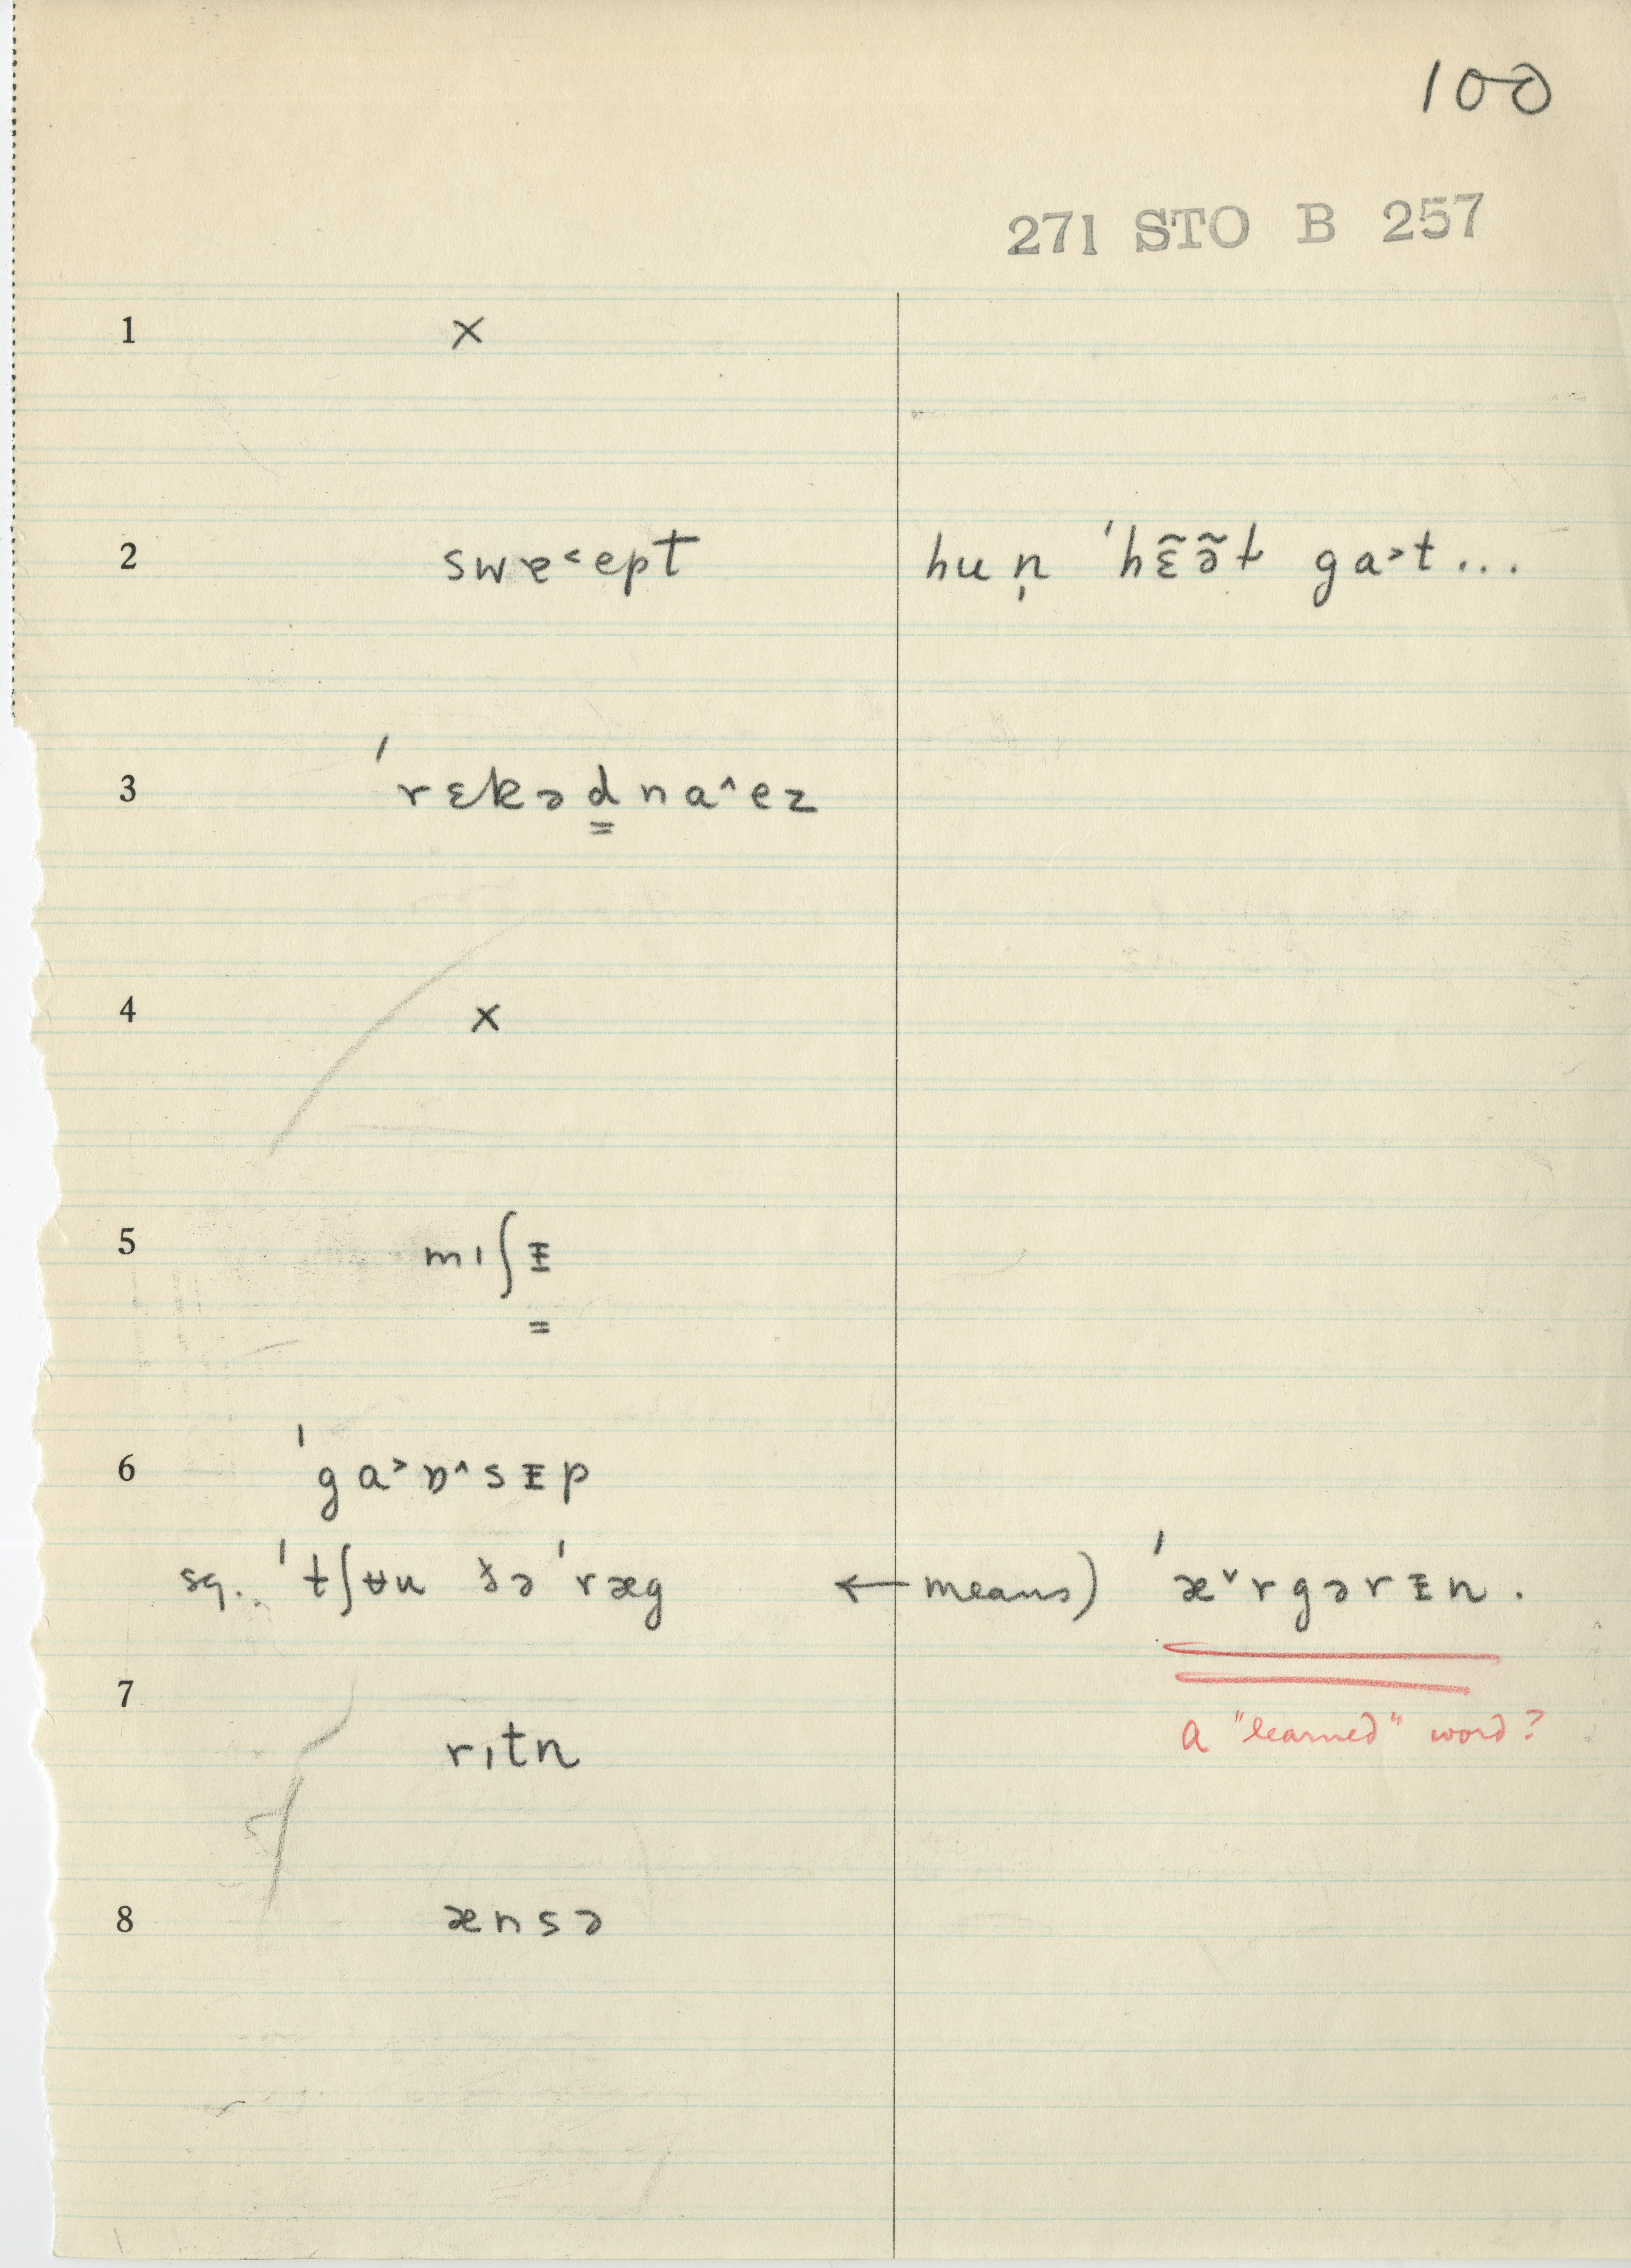 100
271 STO B 257
1 ×
2 swɐ˂ept hu n̩ ˈhɛ̃ə̃t ga˃t...
3 ˈrɛkəd̳na˄ez
4 ×
5 mɪʃᵻ̳
6 ˈga˃ɒ˄sᵻp
sq. ˈtʃʉu ðə ˈræg ← means) ˈæ˅rgərᵻn.
7 rɪtn
a "learned" word?
8 ænsə